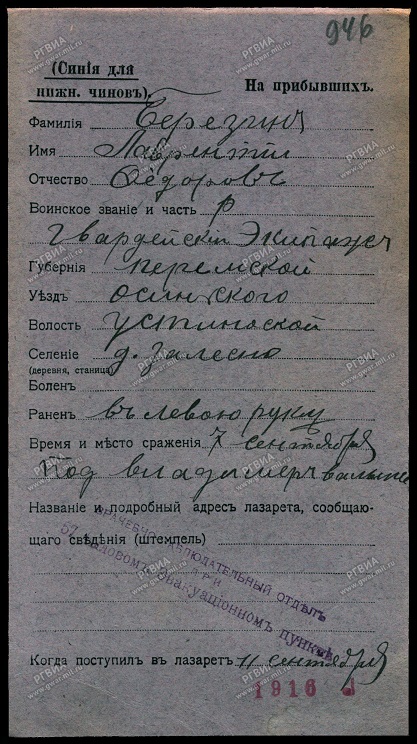 946
(Синія для
нижн. чиновъ).
На прибывшихъ.
Фамилія Березинъ
Имя Лаврентій
Отчество Ѳедоровъ
Воинское званіе и часть р
Гвардейскій Экипажъ
Губернія Пермской
Уѣздъ Осинского
Волость Устиновской
Селеніе д. Залесна
(деревня, станица)
Боленъ
Раненъ въ левою руку
Время и мѣсто сраженія 7 сентября
Под Владимер
Названіе и подробный адресъ лазарета, сообщаю-
щаго свѣдѣнія (штемпель)
ВРАЧЕБНО-НАБЛЮДАТЕЛЬНЫЙ ОТДѢЛЪ
ПРИ
57 эвакуаціонномъ пунктѣ
Когда поступилъ въ лазаретъ 11 сентября
1916
РГВИА
www.gwar.mil.ru